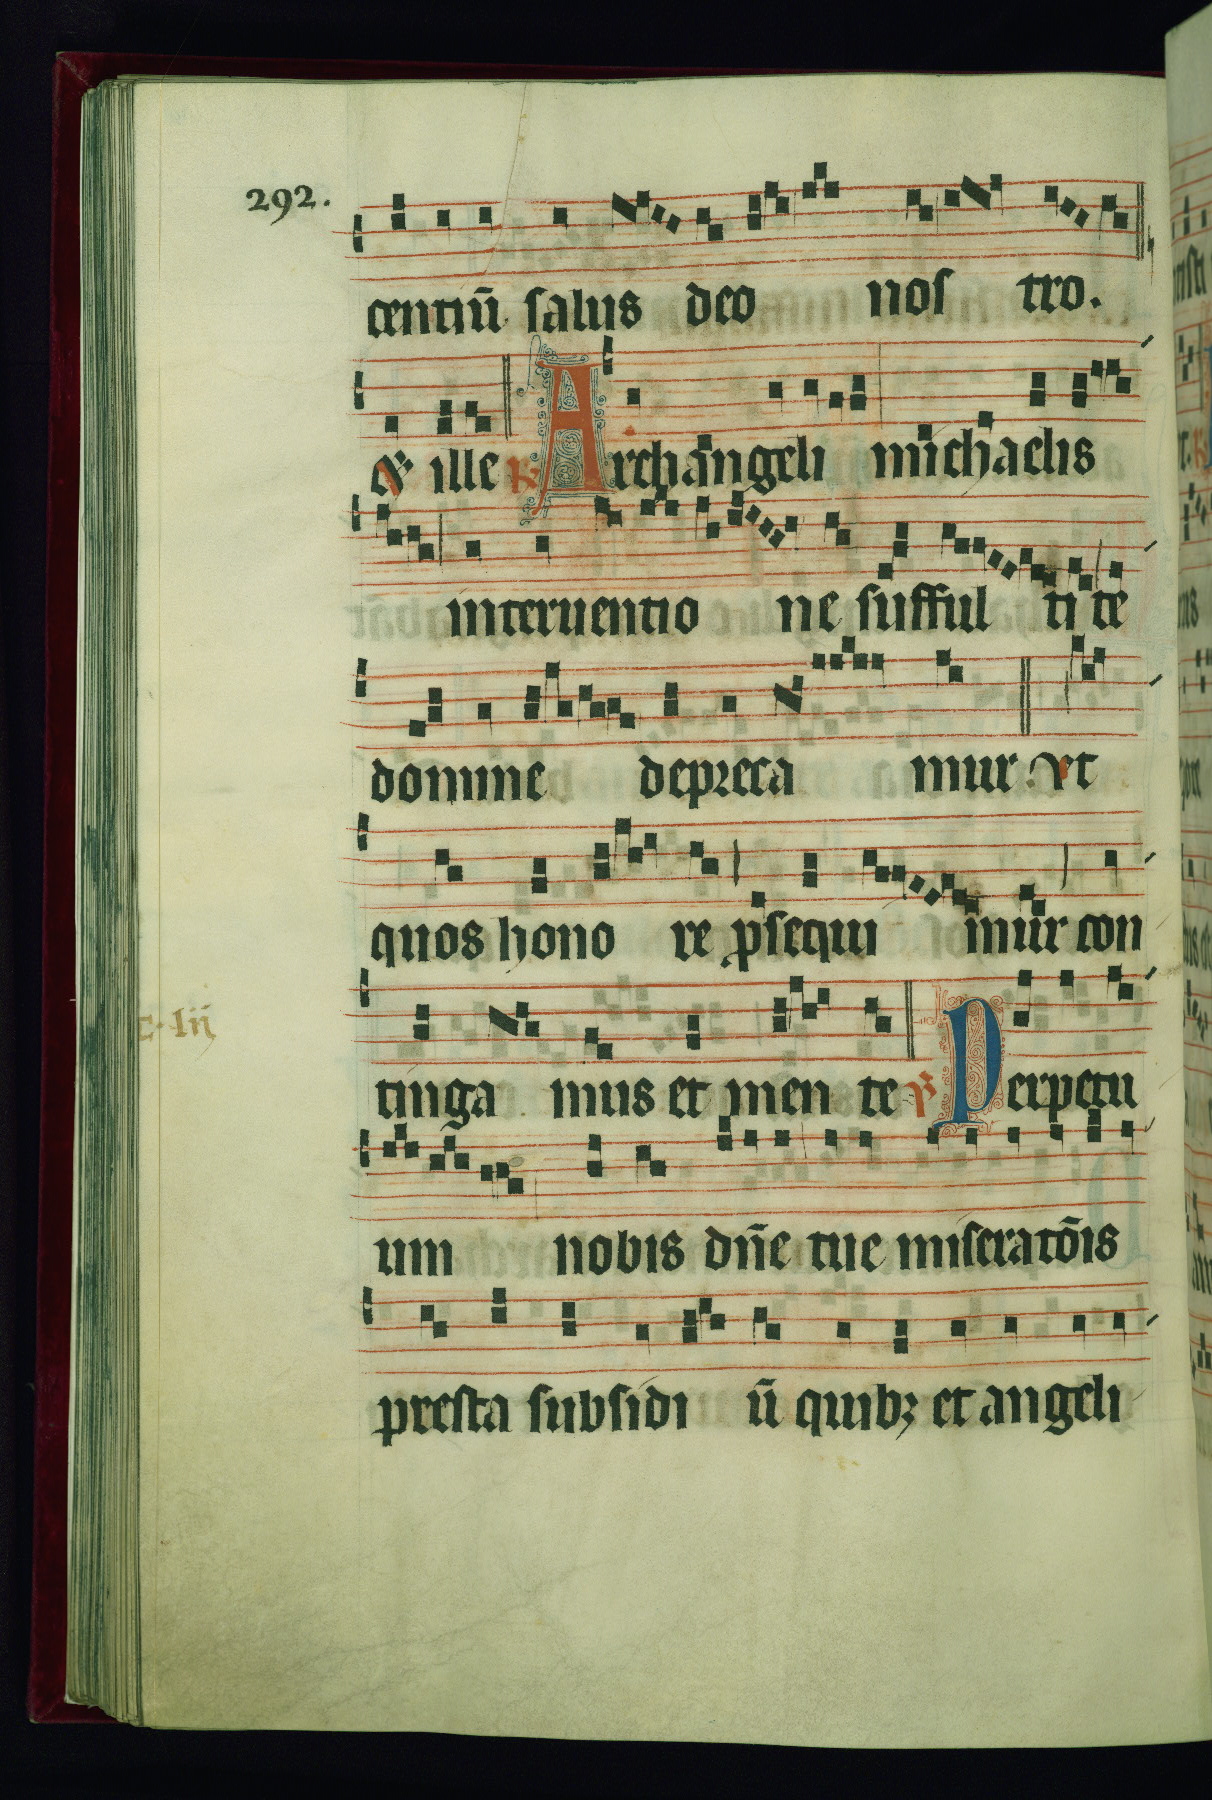 292.
centiū salus deo nos tro.
Et ille R Archangeli michaelis
interuentio ne suffful ti te
domine depreca mur Vt
quos hono re ꝓsequi mur con
tinga mus et men te V Perpetu
um nobis dn̄e tue miseratōis
presta subsidi ū quibꝫ et angeli